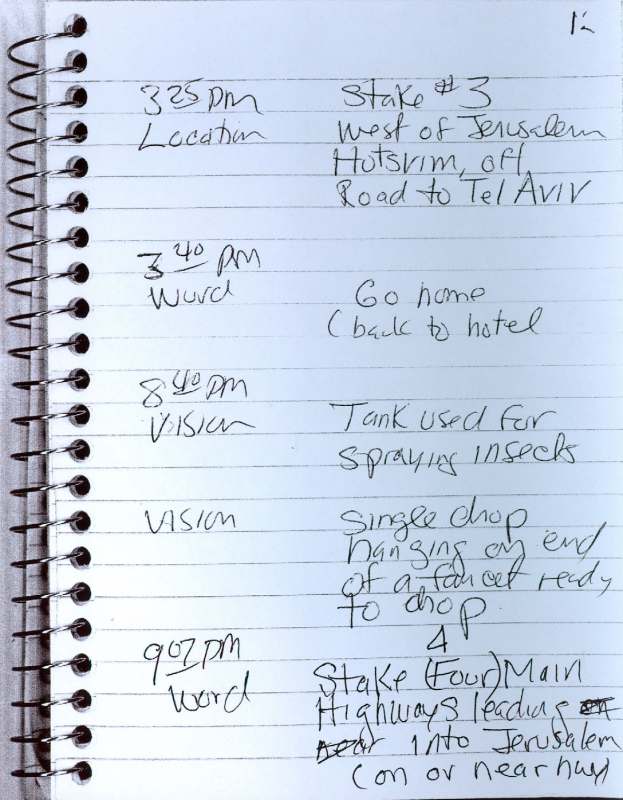 12
3 25 pm Stake # 3
Location west of Jerusalem
Hotsvim, off
Road to Tel Aviv
3 40 pm
Word Go home
(back to hotel
8 40 pm
Vision Tank used for
spraying insects
Vision single drop
hanging on end
of a faucet ready
to drop
4
9 07 pm Stake (Four) Main
Word Highways leading
into Jerusalem
(on or near hwy